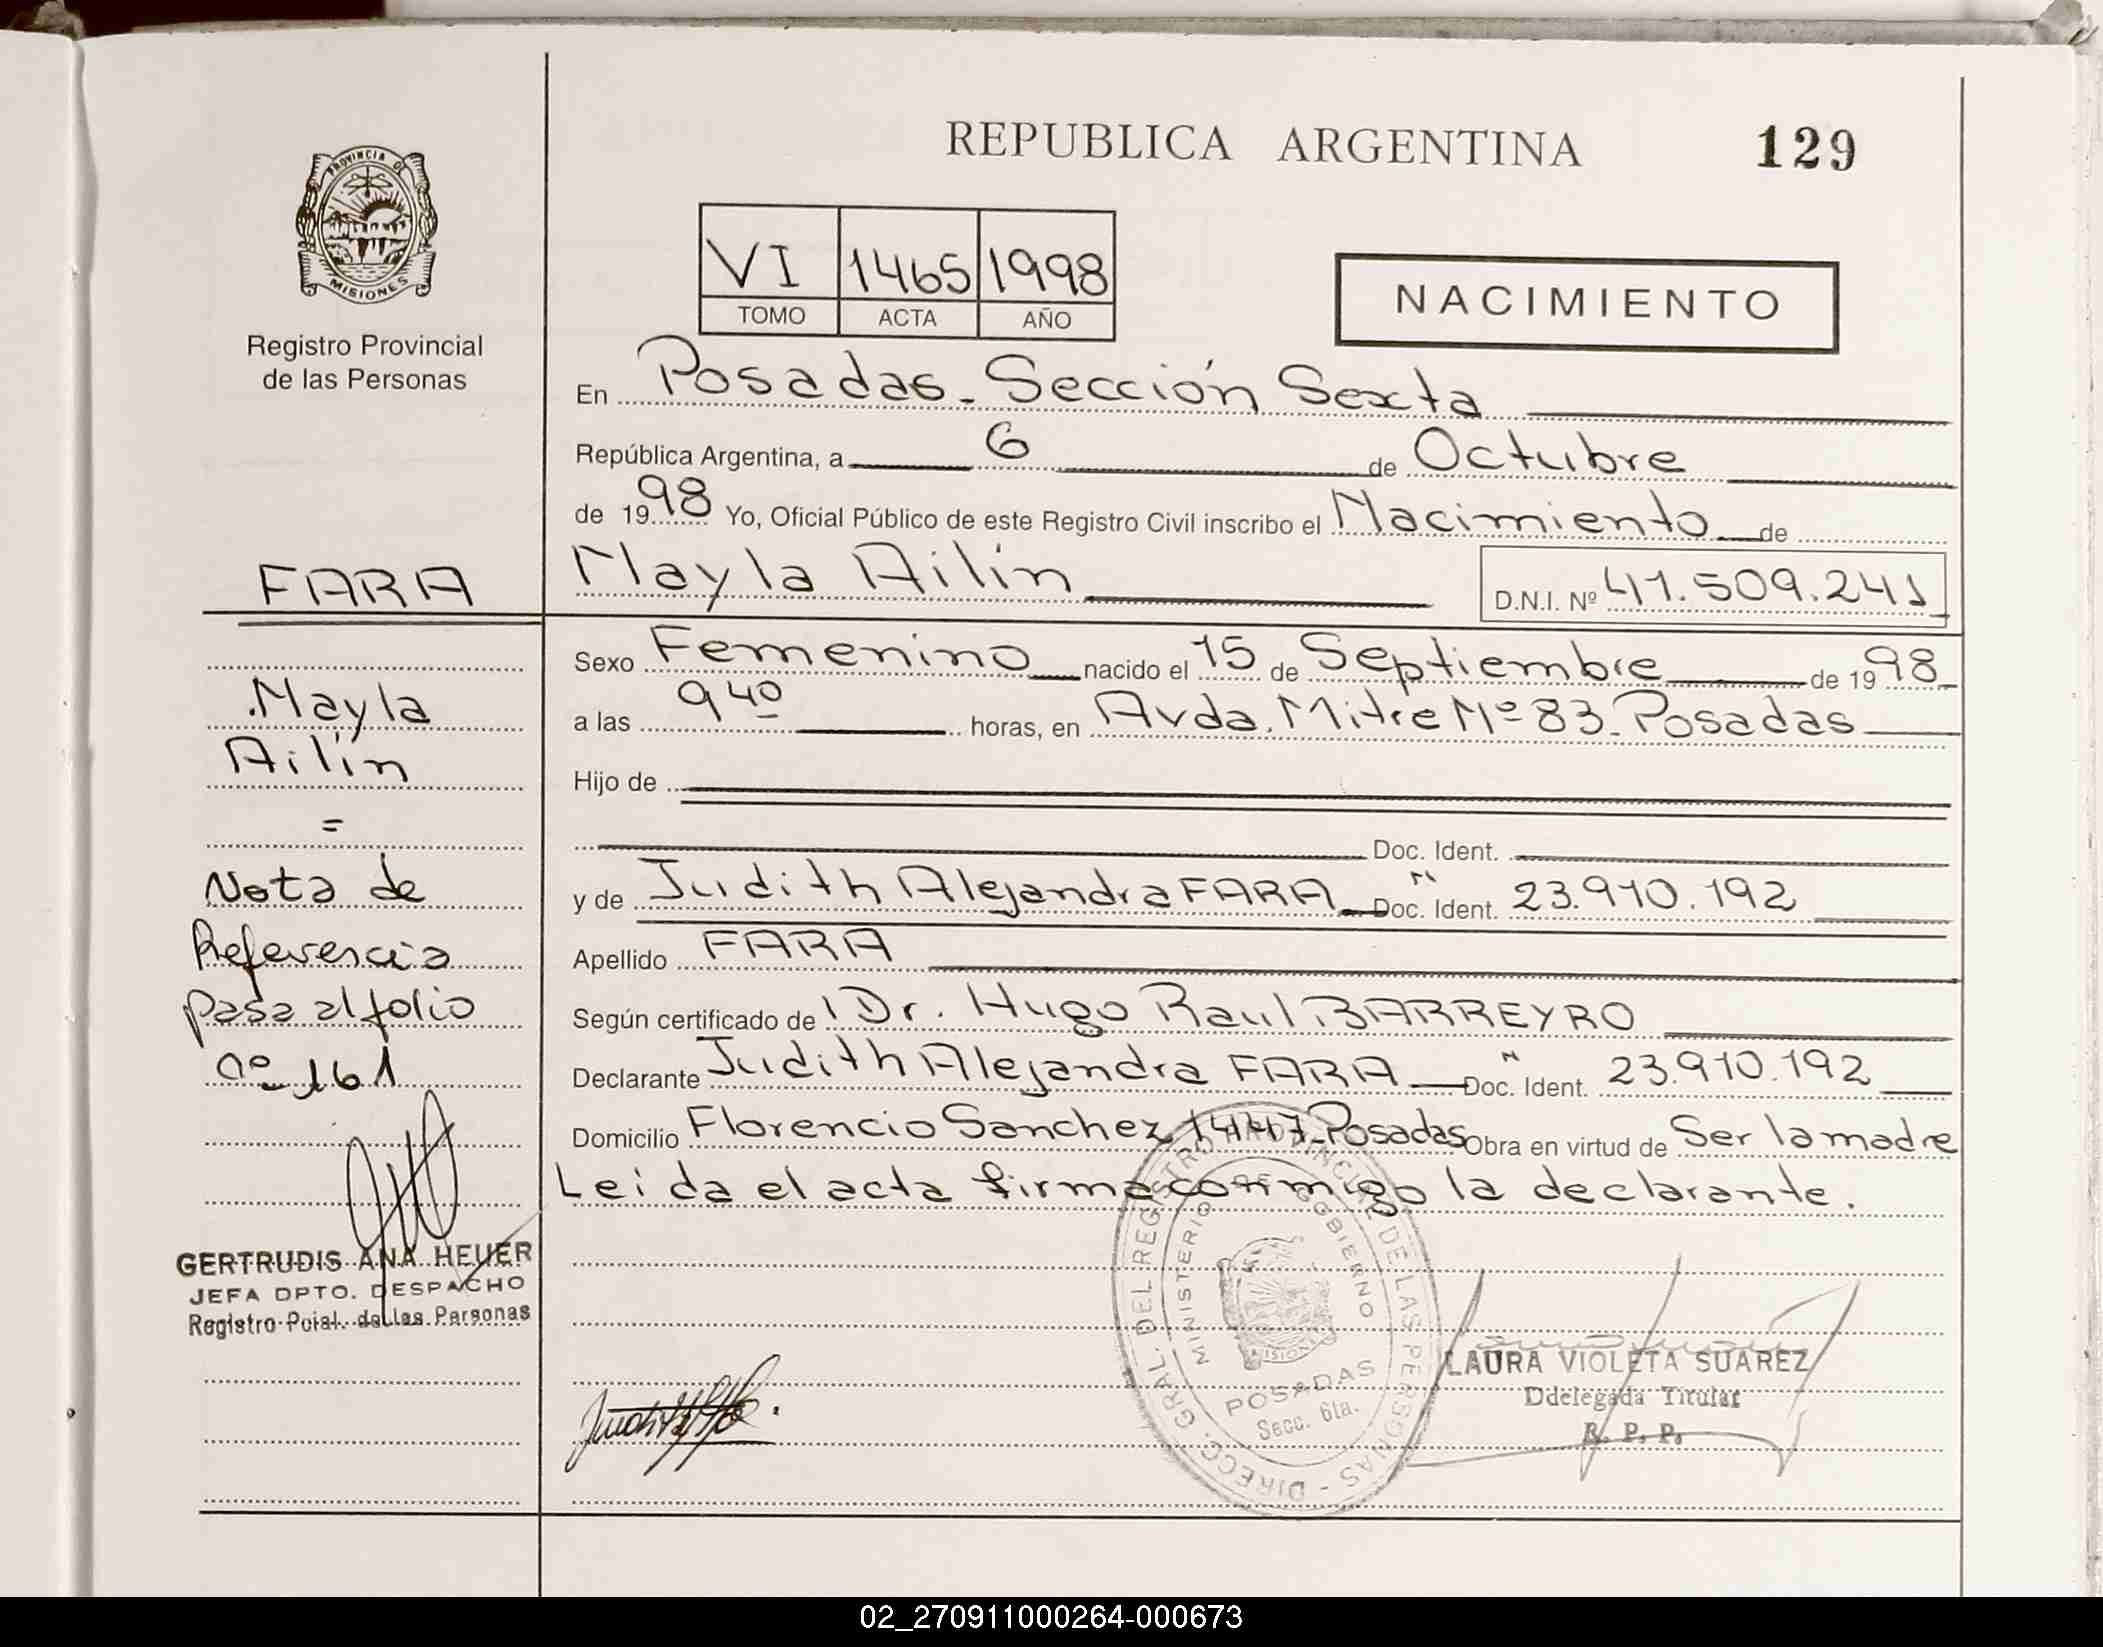 REPUBLICA ARGENTINA
129
PROVINCIA DE
MISIONES
Registro Provincial
de las Personas
VI 1465 1998
TOMO ACTA AÑO
NACIMIENTO
En Posadas - Sección Sexta
República Argentina, a 6 de Octubre
de 1998 Yo, Oficial Público de este Registro Civil inscribo el Nacimiento de
FARA
Mayla Ailín
D.N.I. Nº 41.509.241
Sexo Femenino nacido el 15 de Septiembre de 1998
a las 9 40 horas, en Avda. Mitre Nº 83 - Posadas
Hijo de
Doc. Ident.
y de Judith Alejandra FARA Doc. Ident. 23.910.192
Apellido FARA
Según certificado de Dr. Hugo Raul BARREYRO
Declarante Judith Alejandra FARA Doc. Ident. 23.910.192
Domicilio Florencio Sanchez 1447 - Posadas Obra en virtud de Ser la madre
Leida el acta firma conmigo la declarante.
Mayla
Ailín
=
Nota de
Referencia
pasa al folio
nº 161
GERTRUDIS ANA HEUER
JEFA DPTO. DESPACHO
Registro Pcial. de las Personas
DIRECC. GRAL. DEL REGISTRO PROVINCIAL DE LAS PERSONAS
MINISTERIO DE GOBIERNO
MISIONES
POSADAS
Secc. 6ta.
LAURA VIOLETA SUAREZ
Ddelegada Titular
R. P. P.
02_270911000264-000673